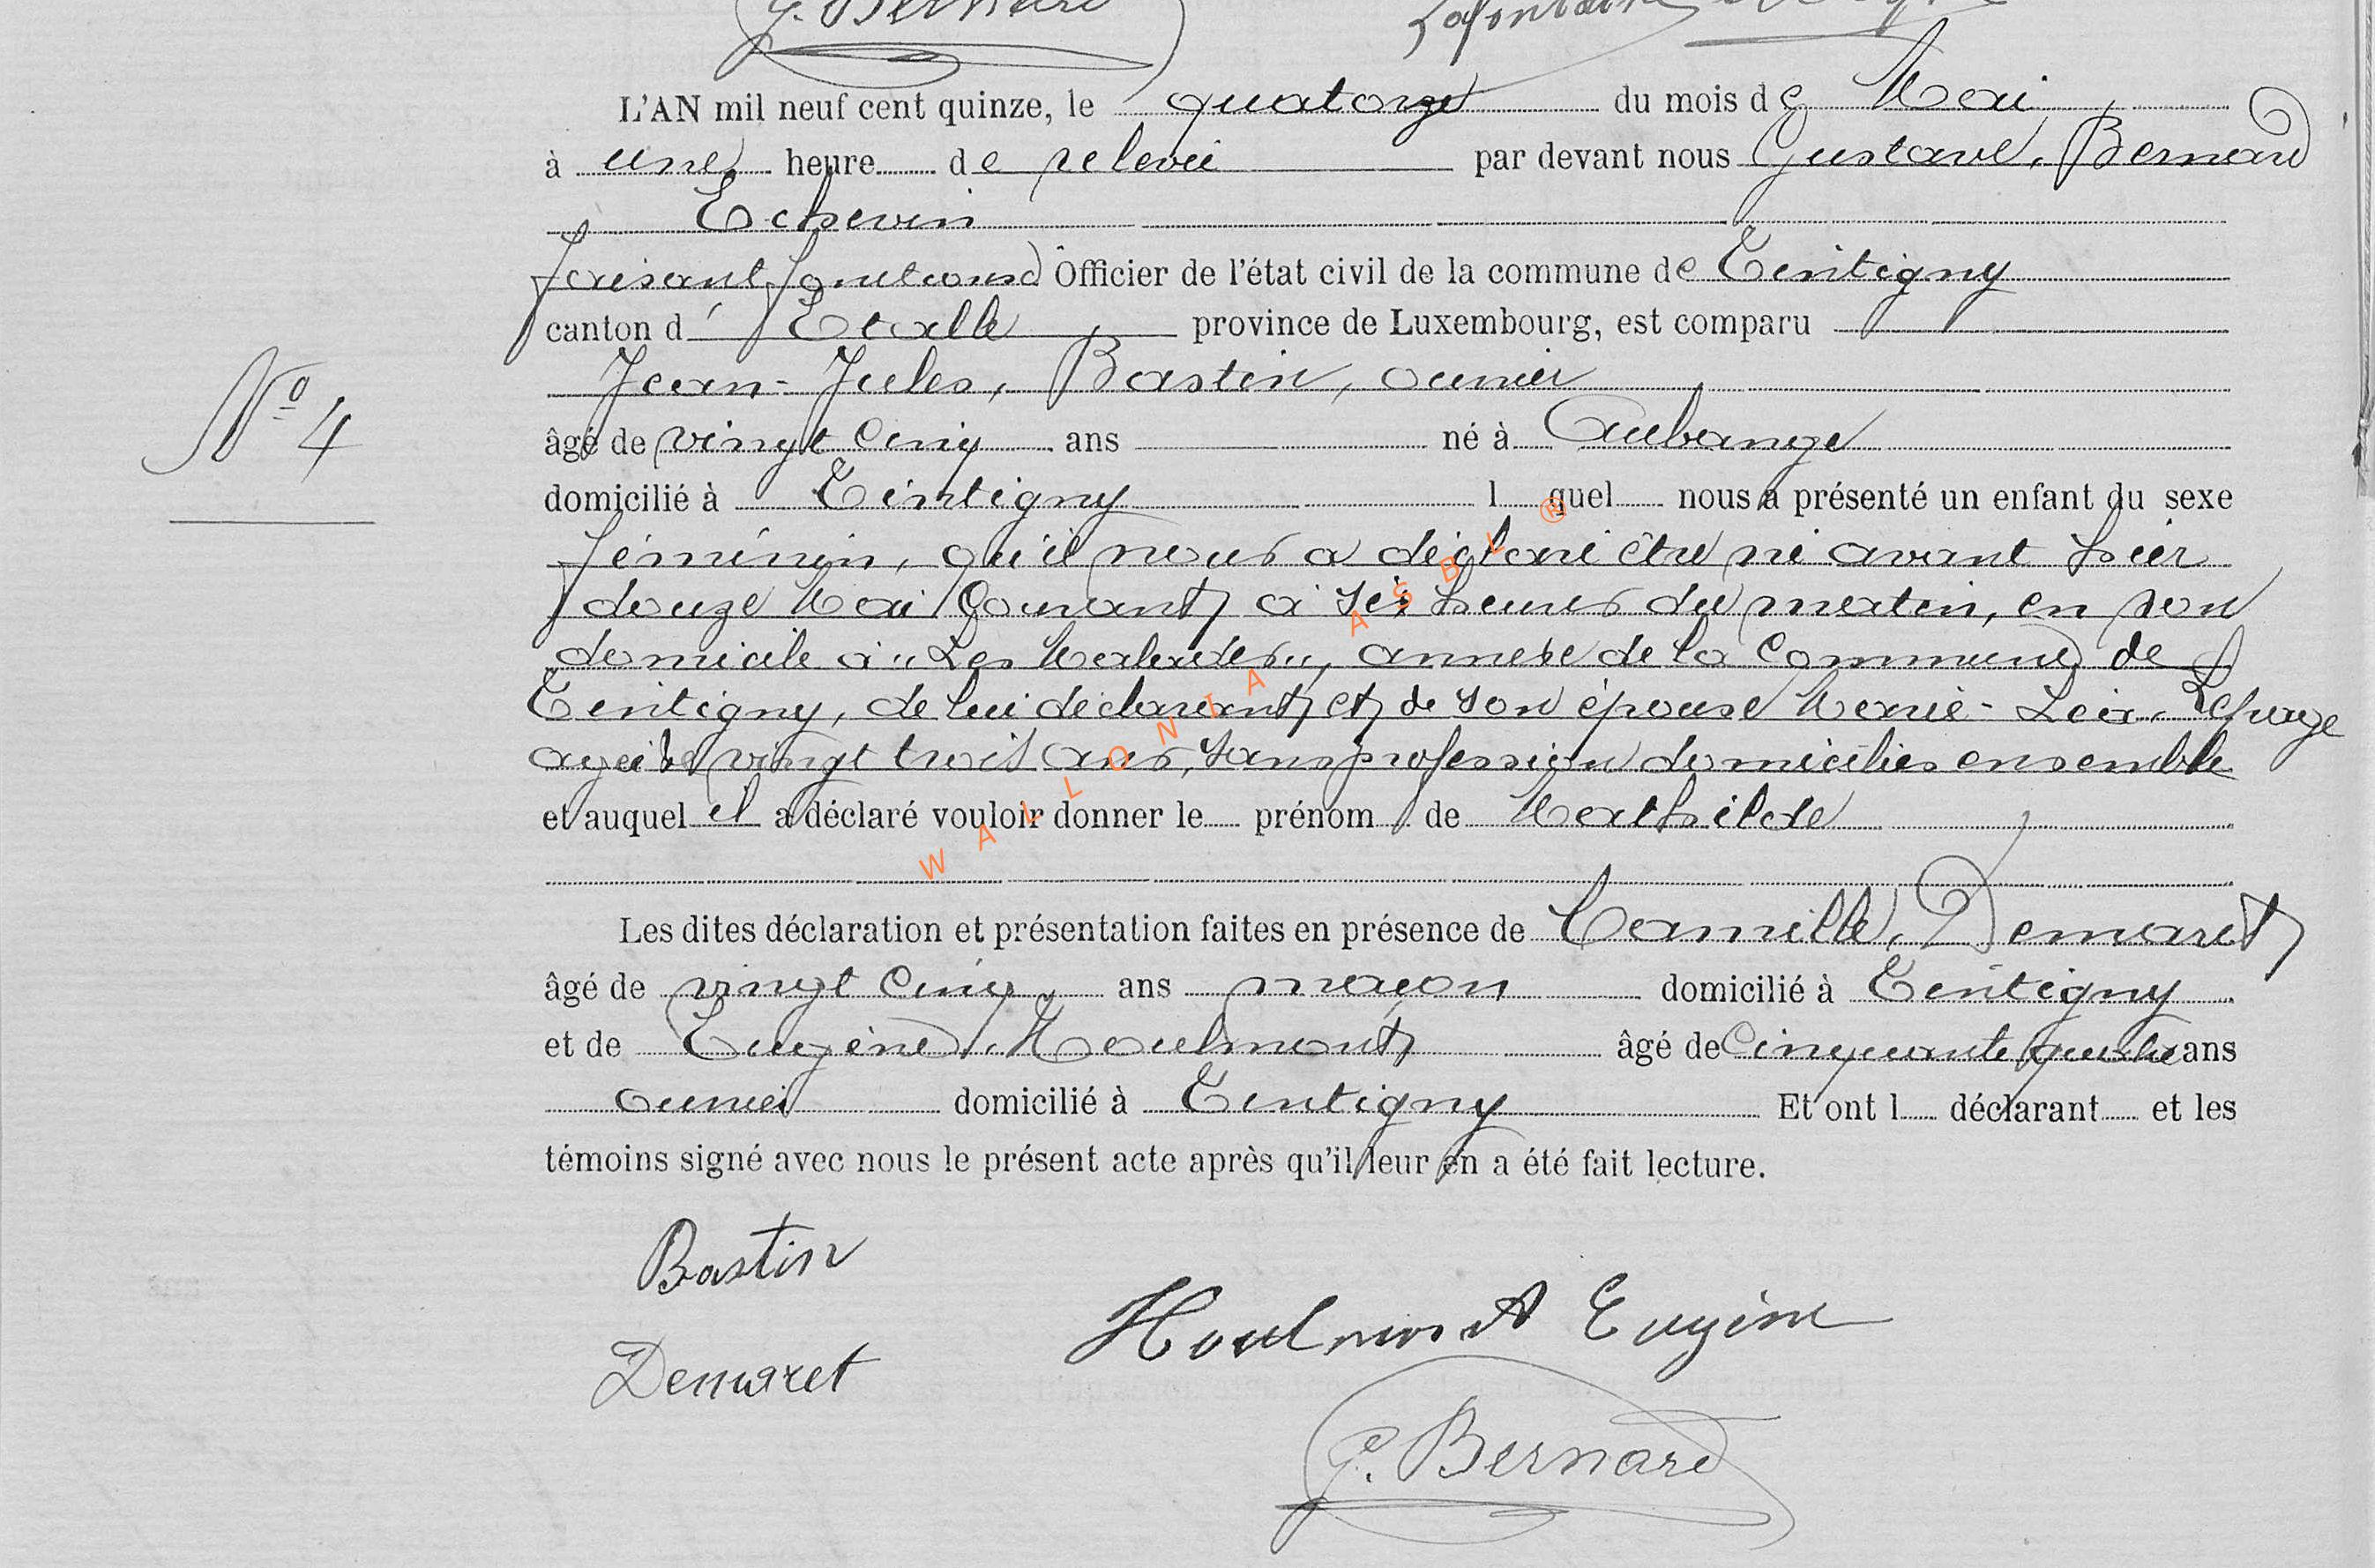 G. Bernard
Lafontaine
L'AN mil neuf cent quinze, le quatorze du mois de Mai
à une heure de relevée par devant nous Gustave, Bernard
Echevin
faisant fonctions d'Officier de l'état civil de la commune de Tintigny
canton d'Etalle province de Luxembourg, est comparu
Jean-Jules, Bastin, ouvrier
Nº 4
âgé de vingt cinq ans né à Aubange
domicilié à Tintigny l quel nous a présenté un enfant du sexe
féminin, qu'il nous a déclaré être né avant hier
douze Mai Courant à six heures du matin, en son
domicile à "Les", annexe de la Commune de
Tintigny, de lui déclarant et de son épouse Marie-Léa, Lepage
agée de vingt trois ans, sans profession domiciliés ensemble
et auquel il a déclaré vouloir donner le prénom de Mathilde
Les dites déclaration et présentation faites en présence de Camille, Demaret
âgé de vingt cinq ans maçon domicilié à Tintigny
et de Eugène, Houlmont âgé de Cinquante quatre ans
ouvrier domicilié à Tintigny Et ont l déclarant et les
témoins signé avec nous le présent acte après qu'il leur en a été fait lecture.
Bastin
Houlmont Eugène
Demaret
G. Bernard
WALLONIA ASBL ®